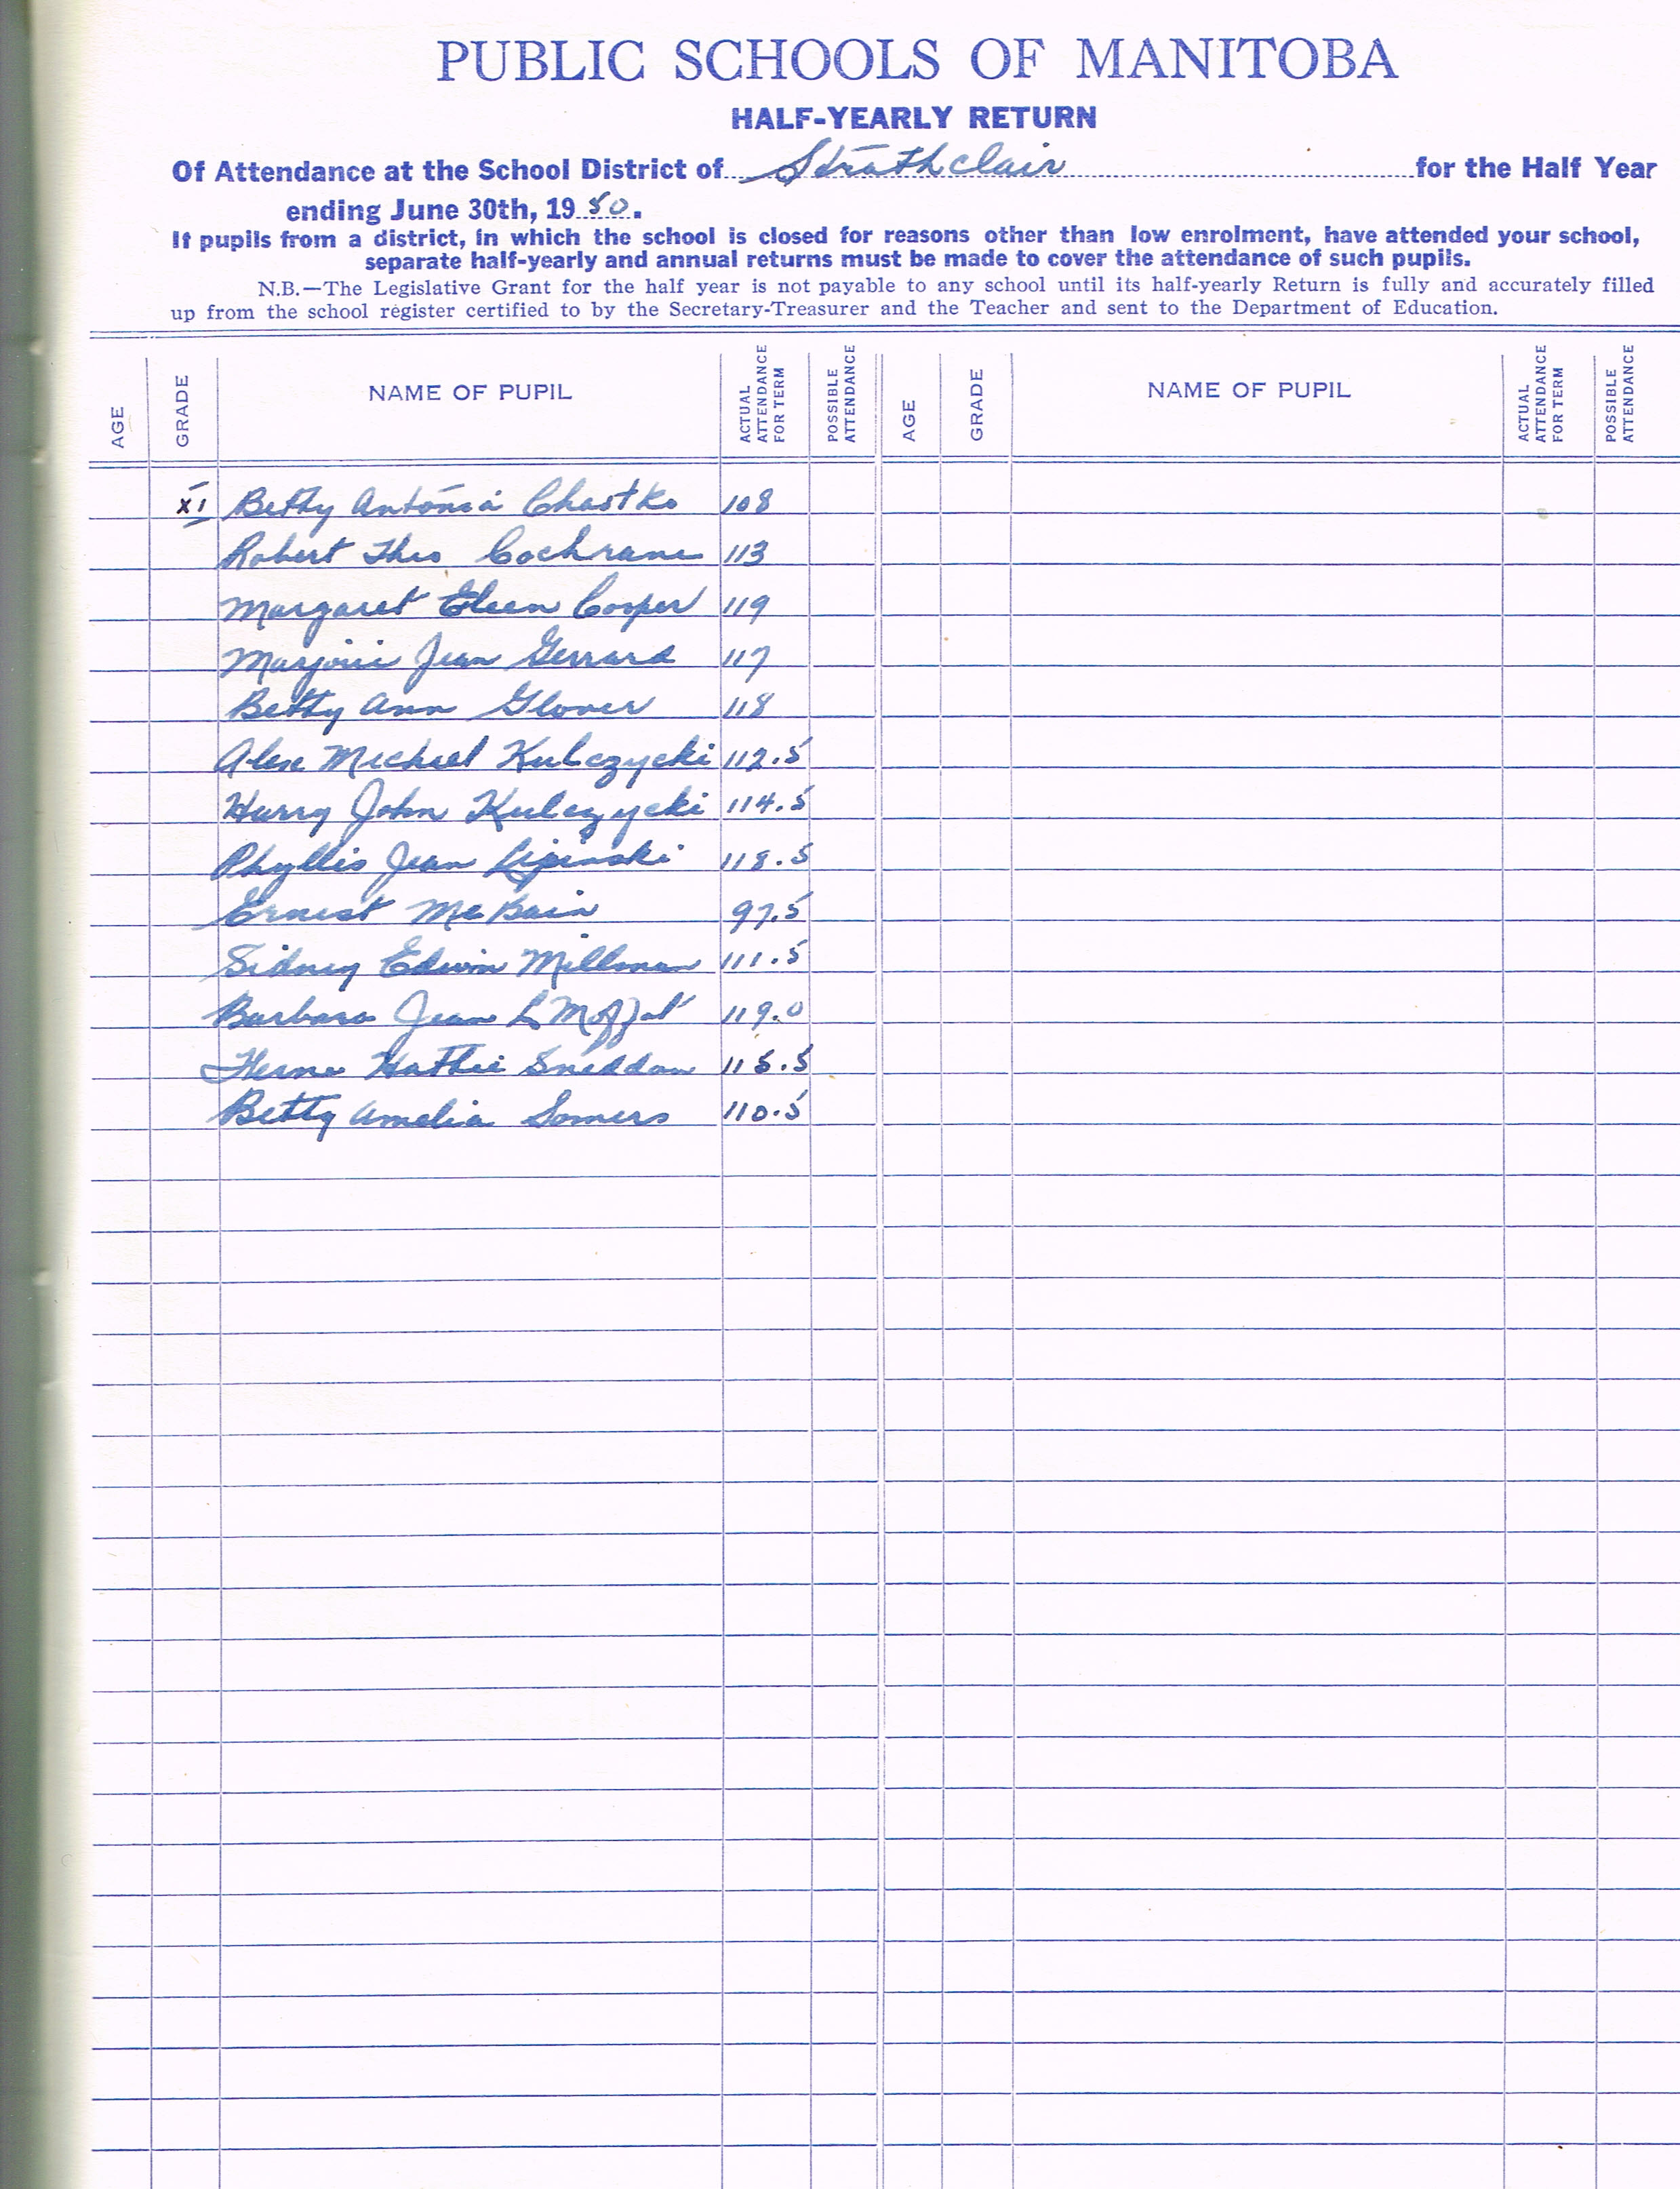 PUBLIC SCHOOLS OF MANITOBA
HALF-YEARLY RETURN
Of Attendance at the School District of Strathclair for the Half Year
ending June 30th, 1950.
If pupils from a district, in which the school is closed for reasons other than low enrolment, have attended your school,
separate half-yearly and annual returns must be made to cover the attendance of such pupils.
N.B.—The Legislative Grant for the half year is not payable to any school until its half-yearly Return is fully and accurately filled
up from the school register certified to by the Secretary-Treasurer and the Teacher and sent to the Department of Education.
AGE GRADE NAME OF PUPIL ACTUAL ATTENDANCE FOR TERM POSSIBLE ATTENDANCE AGE GRADE NAME OF PUPIL ACTUAL ATTENDANCE FOR TERM POSSIBLE ATTENDANCE
XI Betty Antonia Chastko 108
Robert Theo Cochrane 113
Margaret Eleen Cooper 119
Marjorie Jean Gerrard 117
Betty Ann Glover 118
Alex Michael Kulczycki 112.5
Harry John Kulczycki 114.5
Phyllis Jean Lipinski 118.5
Ernest McBain 97.5
Sidney Edwin Millman 111.5
Barbara Jean L Moffat 119.0
Hattie Sneddon 115.5
Betty Amelia Somers 110.5